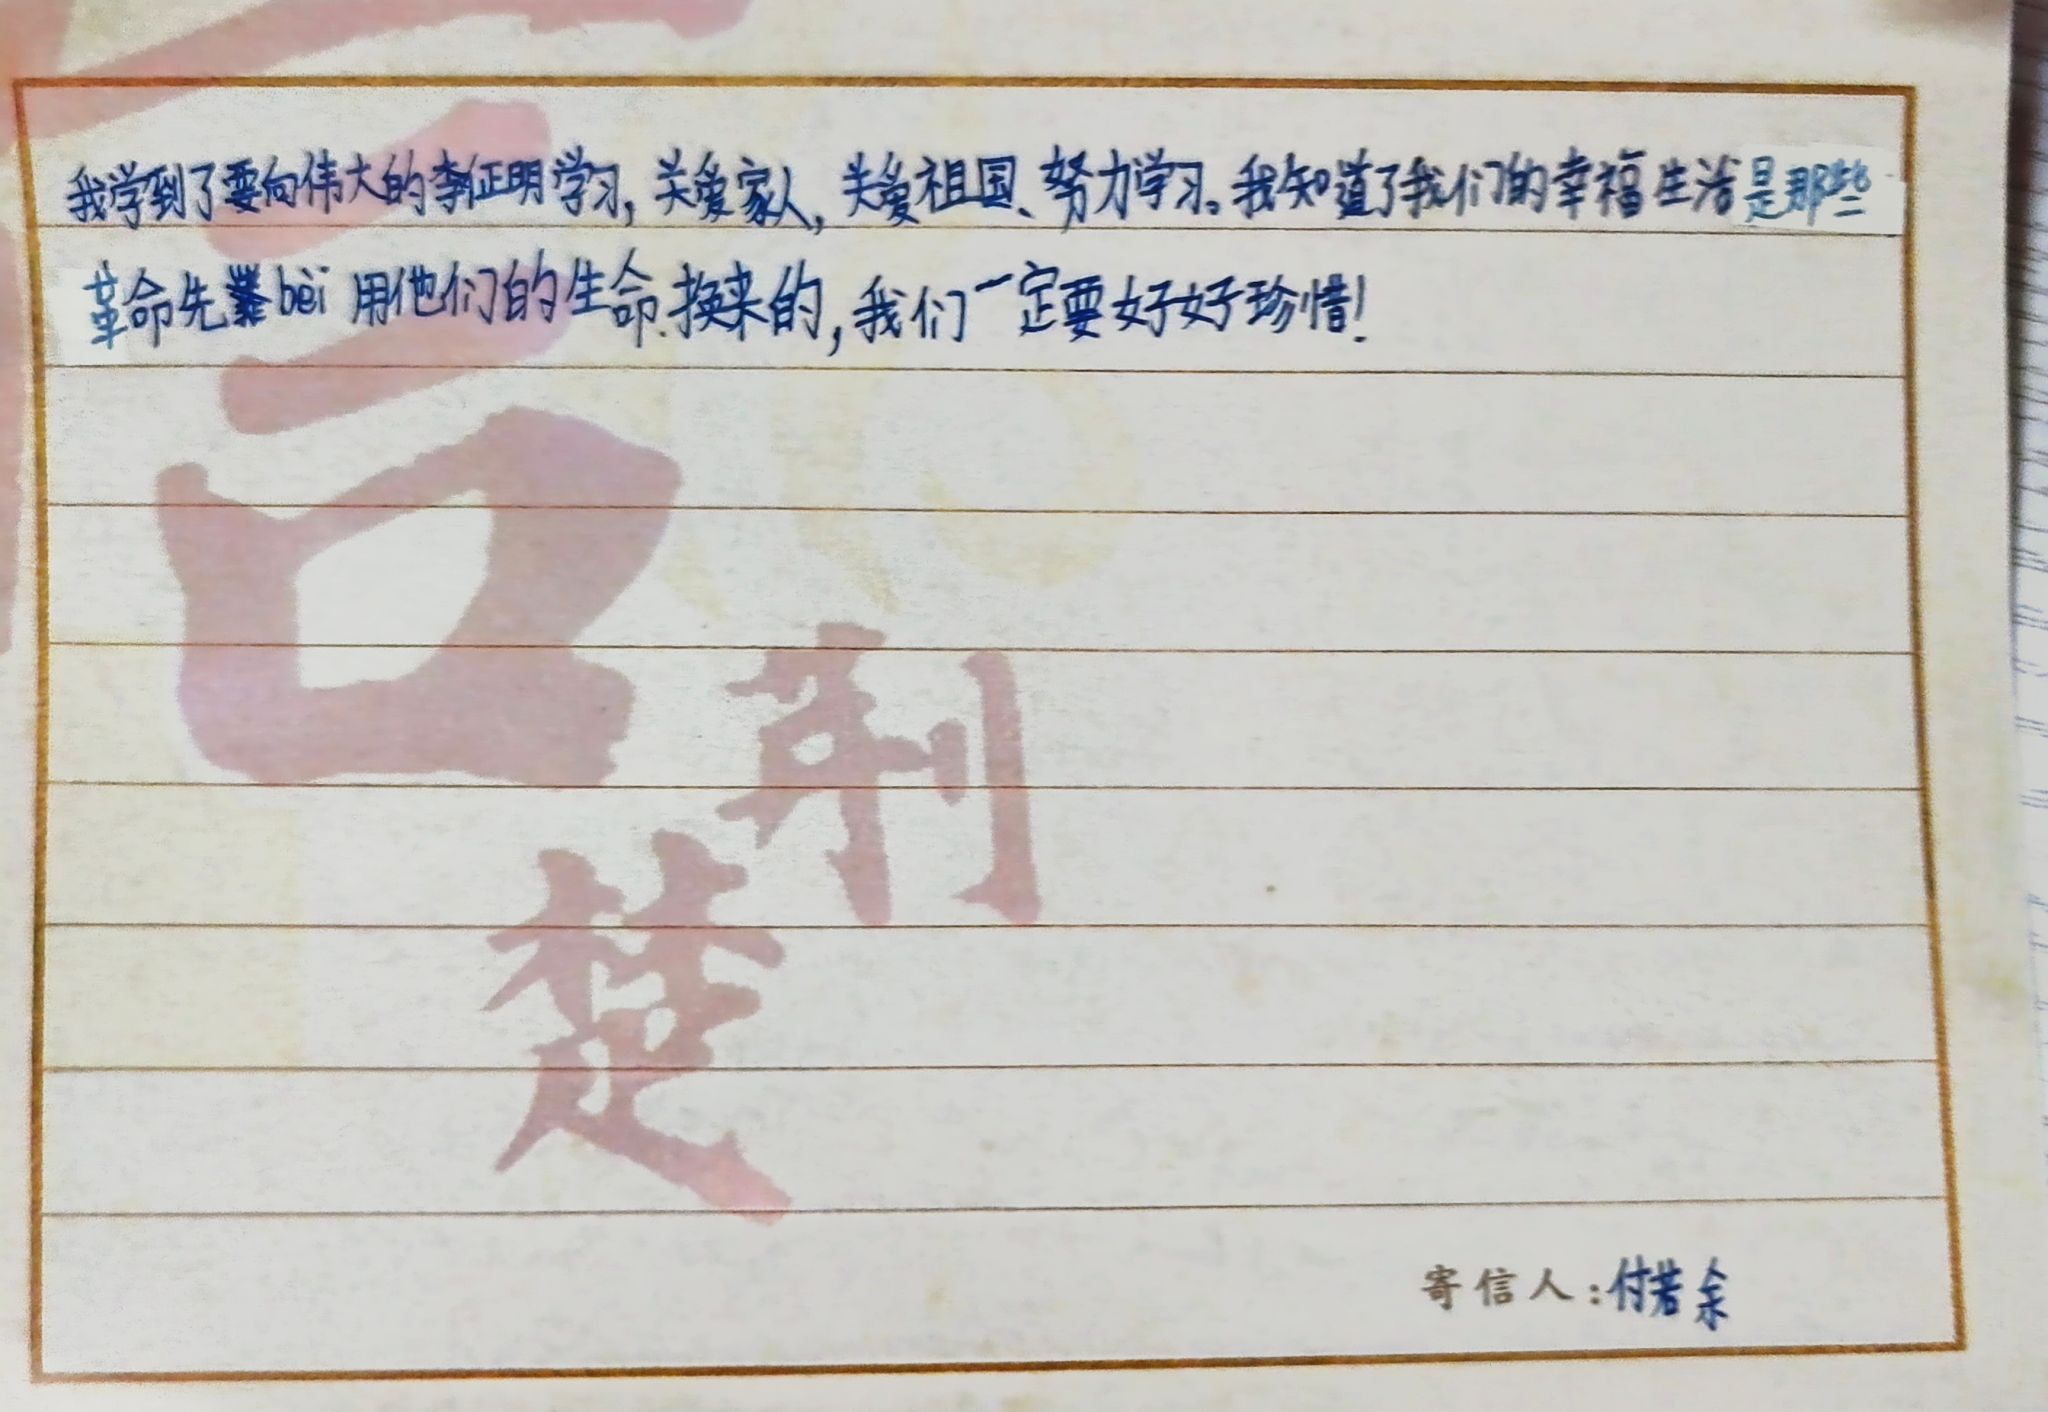 我学到了要向伟大的李征明学习，关爱家人，关爱祖国、努力学习。我知道了我们的幸福生活是那些
革命先bèi用他们的生命换来的，我们一定要好好珍惜！
荆
楚
寄信人：付若余